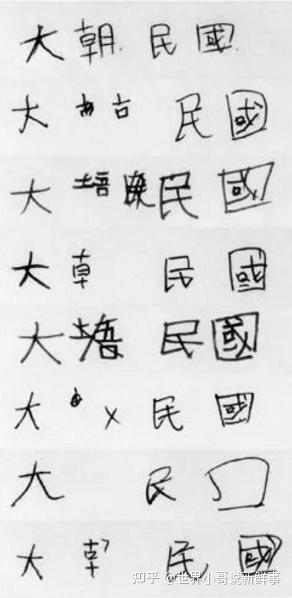 大朝民國
大 古 民國
大 民國
大 民國
大 民國
大 民國
大 民
大 民國
知乎 @世界小哥说新鲜事